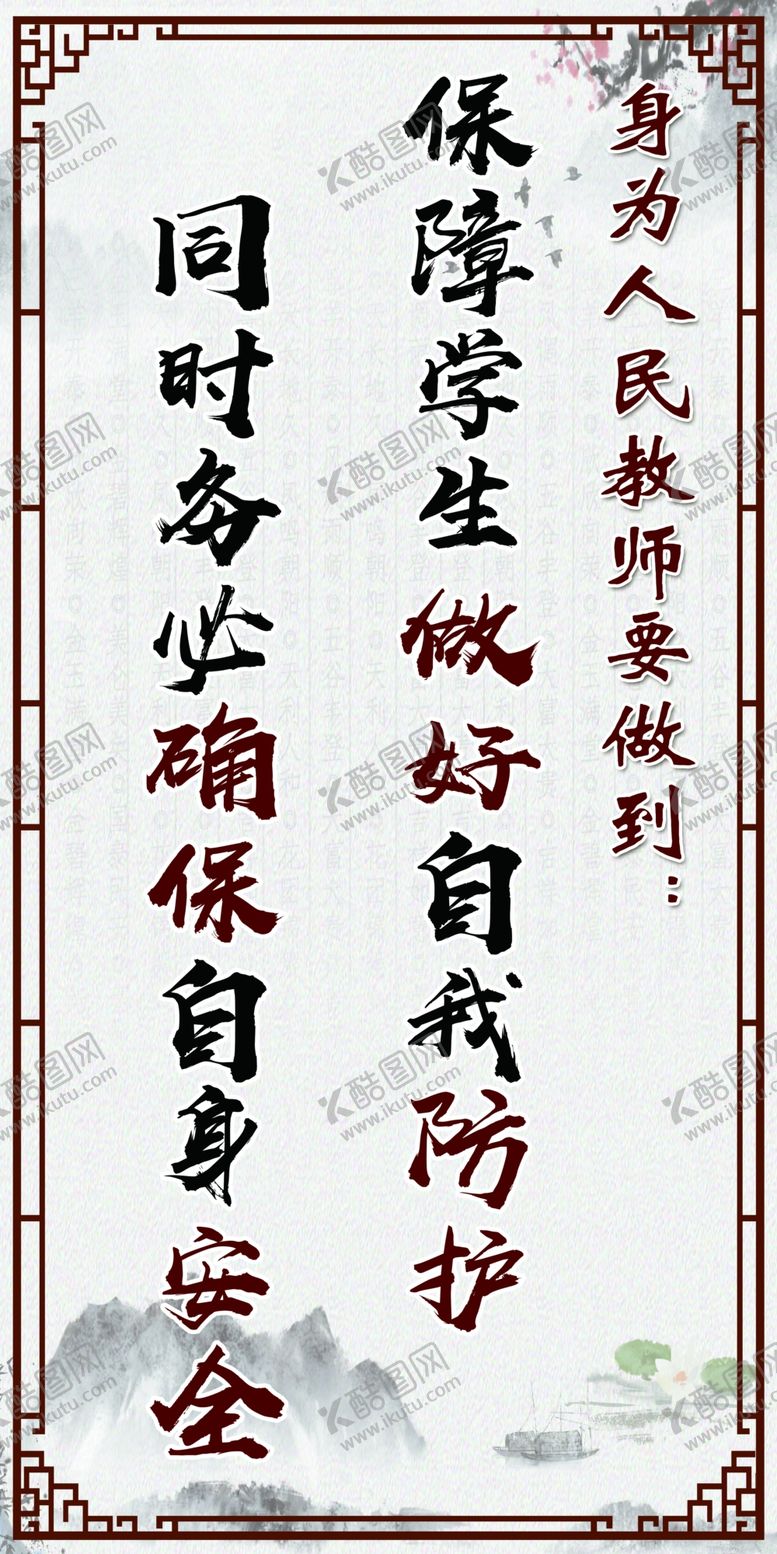 身为人民教师要做到：
保障学生做好自我防护
同时务必确保自身安全
酷图网
www.ikutu.com